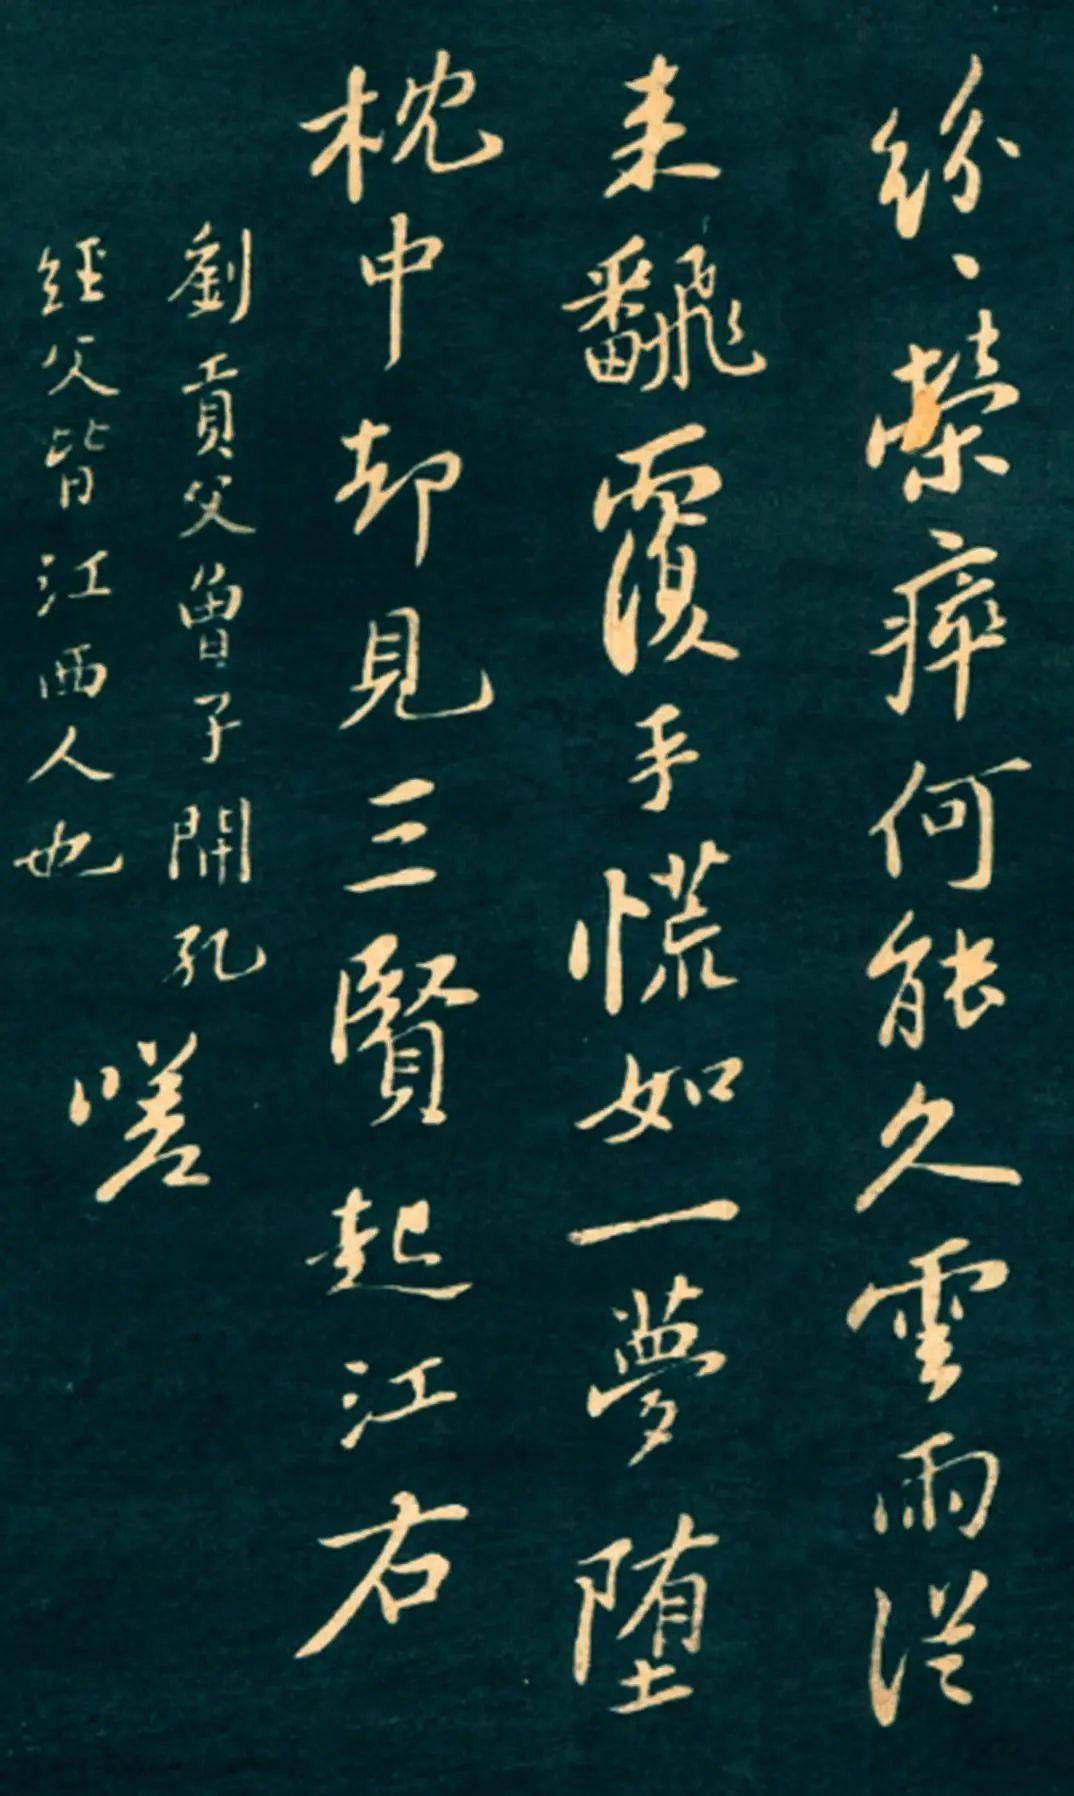 紛、榮瘁何能久雲雨從
来飜覆手慌如一夢堕
枕中却見三賢起江右
劉貢父曾子開孔
經父皆江西人也
嗟